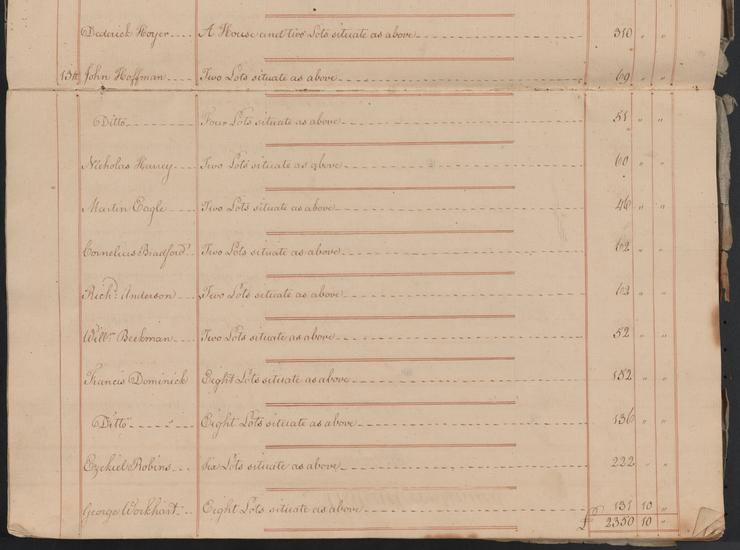 Dederick Hoyer A House and two Lots situate as above 310 " "
13th John Hoffman Two Lots situate as above 69 " "
Ditto Four Lots situate as above 51 " "
Nicholas Two Lots situate as above 60 " "
Martin Eagle Two Lots situate as above 46 " "
Cornelius Bradford Two Lots situate as above 62 " "
Richd. Anderson Two Lots situate as above 62 " "
Willm. Beekman Two Lots situate as above 52 " "
Francis Dominick Eight Lots situate as above 152 " "
Ditto " Eight Lots situate as above 136 " "
Ezekiel Robins Six Lots situate as above 222 " "
George Workhart Eight Lots situate as above 131 10 "
£ 2350 10 "